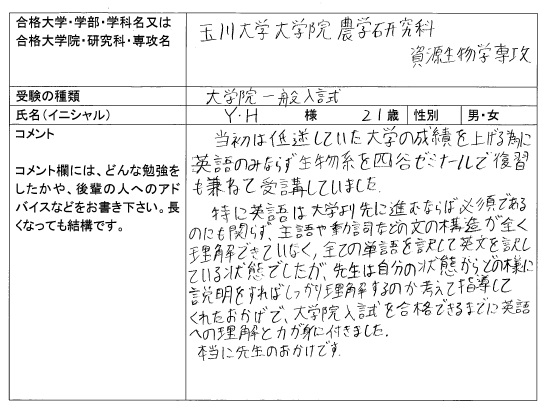 合格大学・学部・学科名又は
合格大学院・研究科・専攻名
玉川大学大学院 農学研究科
資源生物学専攻
受験の種類
大学院 一般入試
氏名(イニシャル)
Y・H 様 21歳 性別 男・女
コメント
コメント欄には、どんな勉強を
したかや、後輩の人へのアド
バイスなどをお書き下さい。長
くなっても結構です。
当初は低迷していた大学の成績を上げる為に
英語のみならず生物系を四谷ゼミナールで復習
も兼ねて受講していました。
特に英語は大学より先に進むならば必須である
のにも関らず、主語や動詞などの文の構造が全く
理解できていなく、全ての単語を訳して英文を訳し
ている状態でしたが、先生は自分の状態からどの様に
説明をすればしっかり理解するのか考えて指導して
くれたおかげで、大学院入試を合格できるまでに英語
への理解と力が身に付きました。
本当に先生のおかげです。